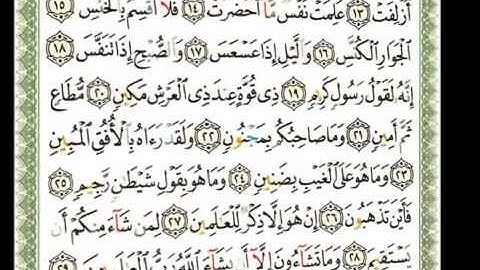 أُزۡلِفَتۡ ١٣ عَلِمَتۡ نَفۡسٞ مَّآ أَحۡضَرَتۡ ١٤ فَلَآ أُقۡسِمُ بِٱلۡخُنَّسِ ١٥
ٱلۡجَوَارِ ٱلۡكُنَّسِ ١٦ وَٱلَّيۡلِ إِذَا عَسۡعَسَ ١٧ وَٱلصُّبۡحِ إِذَا تَنَفَّسَ ١٨
إِنَّهُۥ لَقَوۡلُ رَسُولٖ كَرِيمٖ ١٩ ذِي قُوَّةٍ عِندَ ذِي ٱلۡعَرۡشِ مَكِينٖ ٢٠ مُّطَاعٖ
ثَمَّ أَمِينٖ ٢١ وَمَا صَاحِبُكُم بِمَجۡنُونٖ ٢٢ وَلَقَدۡ رَءَاهُ بِٱلۡأُفُقِ ٱلۡمُبِينِ
٢٣ وَمَا هُوَ عَلَى ٱلۡغَيۡبِ بِضَنِينٖ ٢٤ وَمَا هُوَ بِقَوۡلِ شَيۡطَٰنٖ رَّجِيمٖ ٢٥
فَأَيۡنَ تَذۡهَبُونَ ٢٦ إِنۡ هُوَ إِلَّا ذِكۡرٞ لِّلۡعَٰلَمِينَ ٢٧ لِمَن شَآءَ مِنكُمۡ أَن
يَسۡتَقِيمَ ٢٨ وَمَا تَشَآءُونَ إِلَّآ أَن يَشَآءَ ٱللَّهُ رَبُّ ٱلۡعَٰلَمِينَ ٢٩